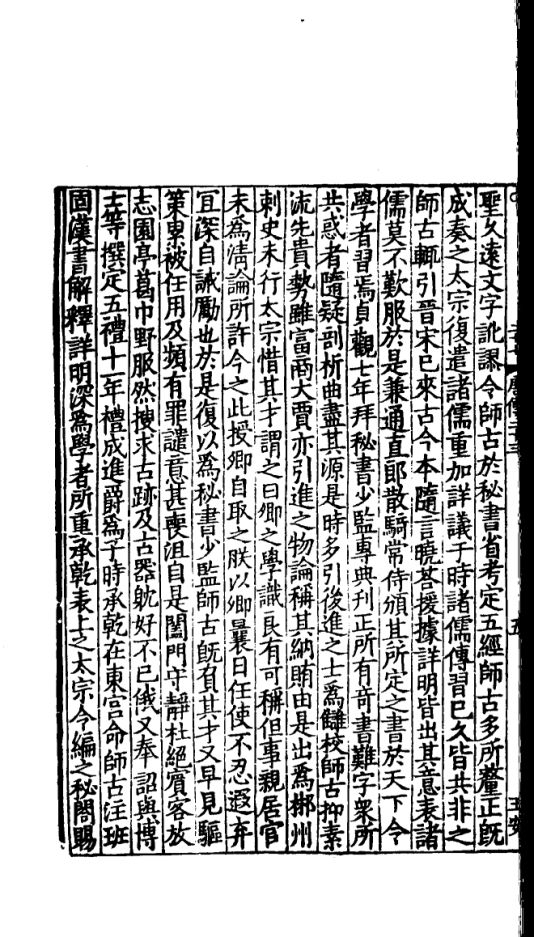 聖久遠文字訛謬令師古於秘書省考定五經師古多所釐正旣
成奏之太宗復遣諸儒重加詳議于時諸儒傳習已久皆共非之
師古輒引晉宋已來古今本隨言曉荅援據詳明皆出其意表諸
儒莫不歎服於是兼通直郎散騎常侍頒其所定之書於天下令
學者習焉貞觀七年拜秘書少監專典刊正所有竒書難字衆所
共惑者隨疑剖析曲盡其源是時多引後進之士爲讎校師古抑素
流先貴勢雖富商大賈亦引進之物論稱其納賄由是出爲郴州
刺史未行太宗惜其才謂之曰卿之學識良有可稱但事親居官
未爲淸論所許今之此授卿自取之朕以卿曩日任使不忍遐弃
冝深自誡勵也於是復以爲秘書少監師古旣負其才又早見驅
策累被任用及頻有罪譴意甚喪沮自是闔門守靜杜絕賓客放
志園亭葛巾野服然搜求古跡及古器躭好不已俄又奉詔與博
士等撰定五禮十一年禮成進爵爲子時承乾在東宮命師古注班
固漢書解釋詳明深爲學者所重承乾表上之太宗令編之秘閣賜